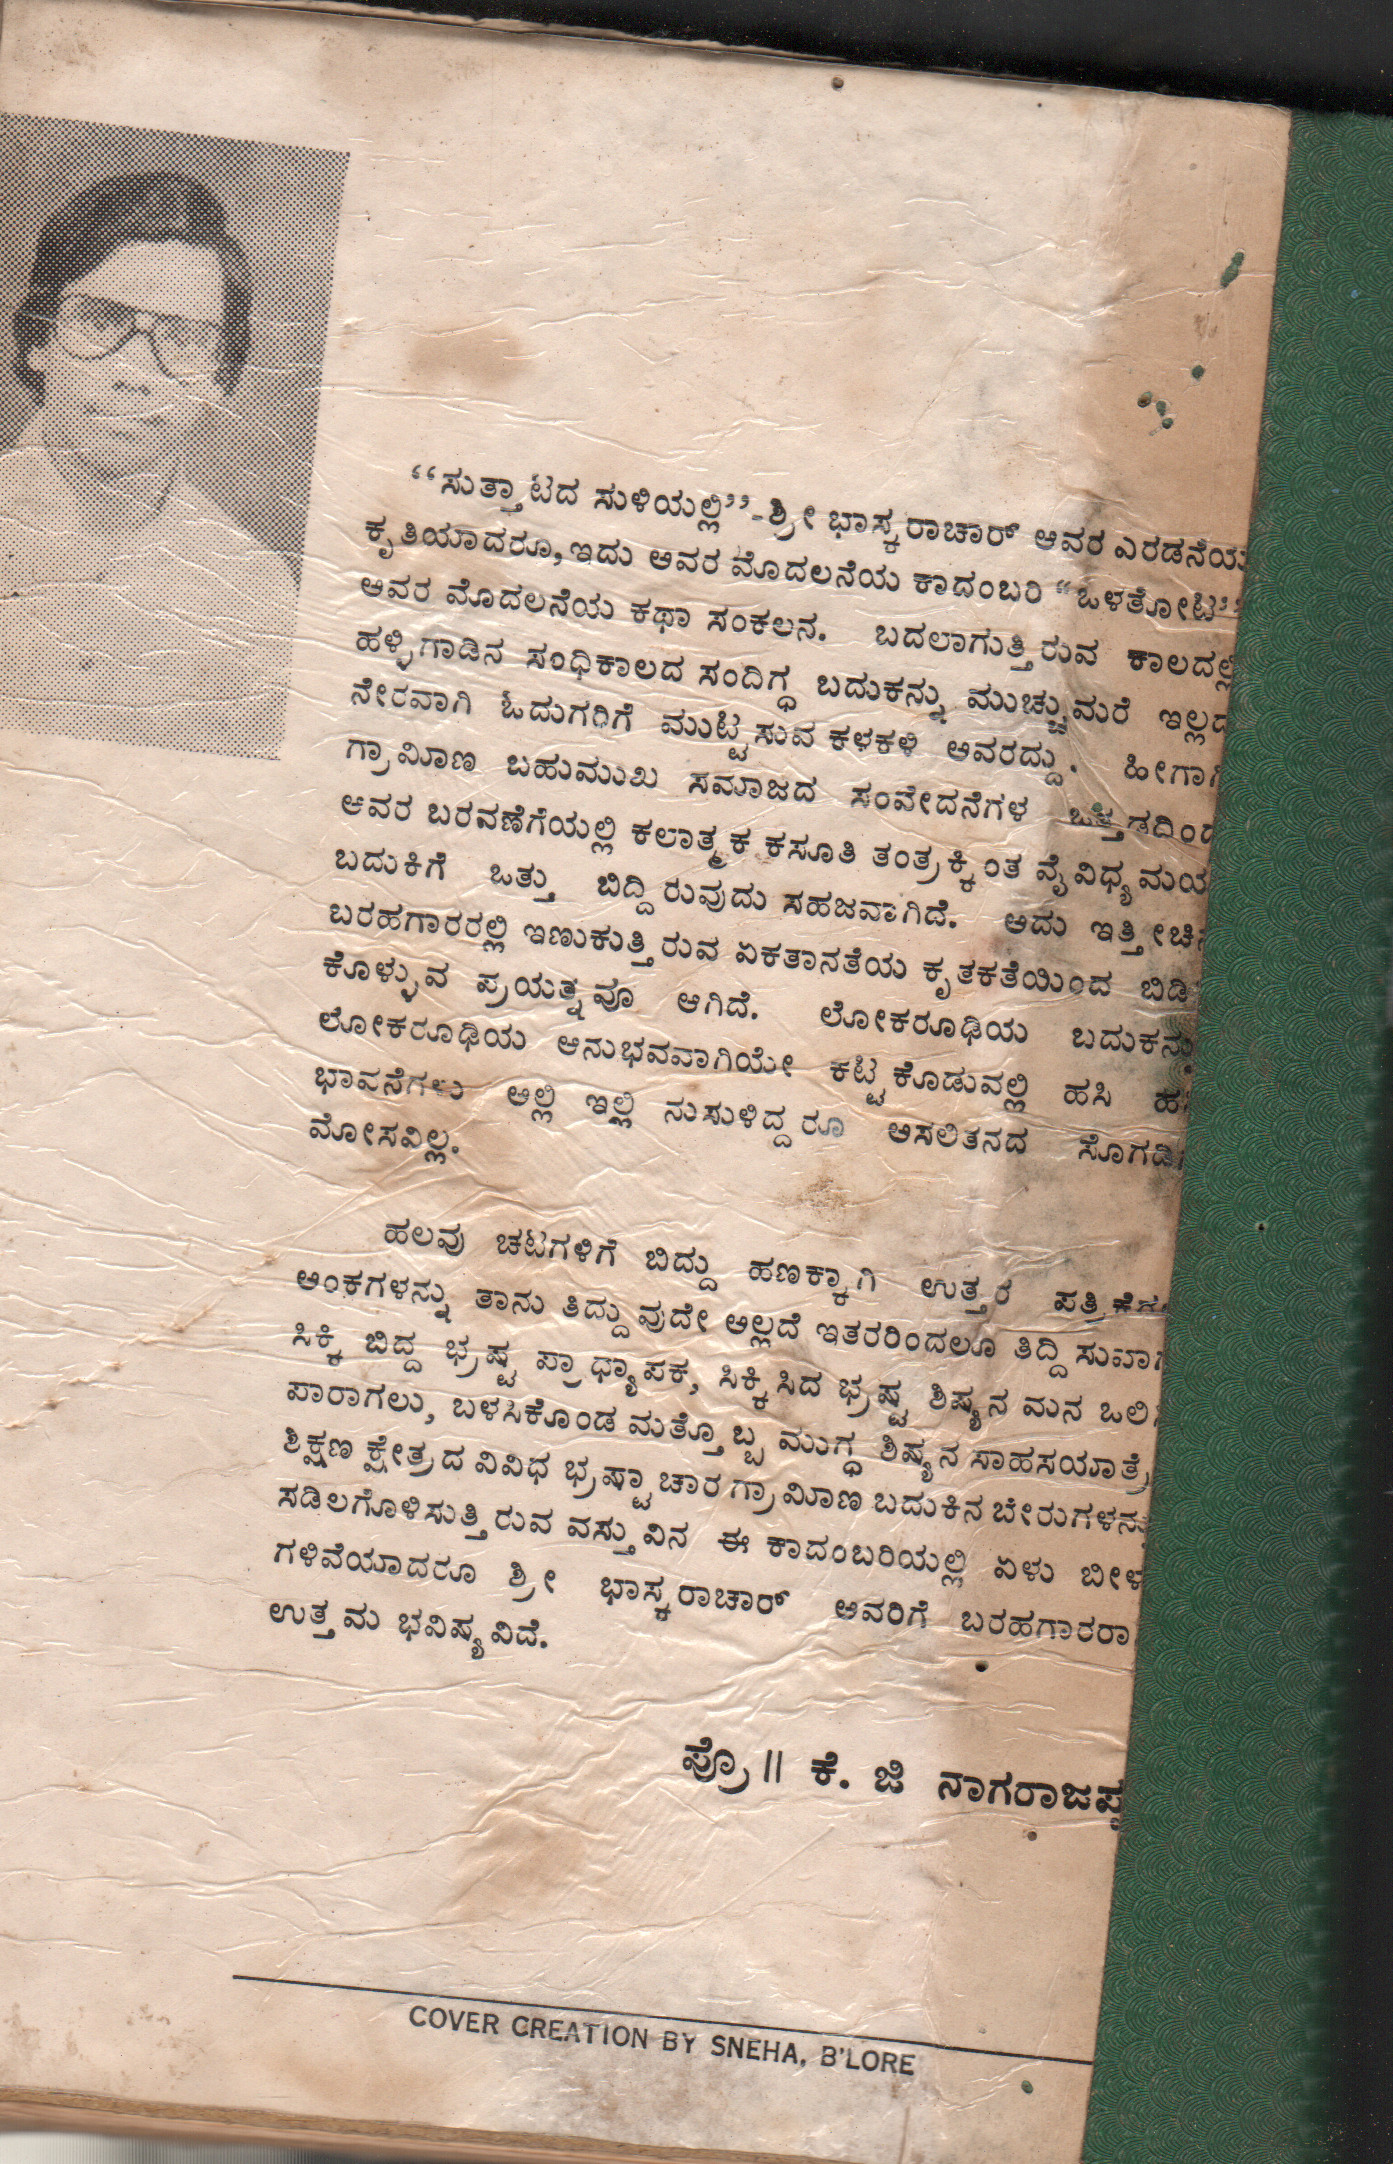 “ಸುತ್ತಾಟದ ಸುಳಿಯಲ್ಲಿ”-ಶ್ರೀ ಭಾಸ್ಕರಾಚಾರ್ ಅವರ ಎರಡನೆಯ
ಕೃತಿಯಾದರೂ, ಇದು ಅವರ ಮೊದಲನೆಯ ಕಾದಂಬರಿ “ಒಳತೋಟಿ”
ಅವರ ಮೊದಲನೆಯ ಕಥಾ ಸಂಕಲನ. ಬದಲಾಗುತ್ತಿರುವ ಕಾಲದಲ್ಲಿ
ಹಳ್ಳಿಗಾಡಿನ ಸಂಧಿಕಾಲದ ಸಂದಿಗ್ಧ ಬದುಕನ್ನು ಮುಚ್ಚುಮರೆ ಇಲ್ಲದ
ನೇರವಾಗಿ ಓದುಗರಿಗೆ ಮುಟ್ಟಿಸುವ ಕಳಕಳಿ ಅವರದ್ದು. ಹೀಗಾಗಿ
ಗ್ರಾಮೀಣ ಬಹುಮುಖ ಸಮಾಜದ ಸಂವೇದನೆಗಳ ಒತ್ತಡದಿಂದ
ಅವರ ಬರವಣಿಗೆಯಲ್ಲಿ ಕಲಾತ್ಮಕ ಕಸೂತಿ ತಂತ್ರಕ್ಕಿಂತ ವೈವಿಧ್ಯಮಯ
ಬದುಕಿಗೆ ಒತ್ತು ಬಿದ್ದಿರುವುದು ಸಹಜವಾಗಿದೆ. ಅದು ಇತ್ತೀಚಿನ
ಬರಹಗಾರರಲ್ಲಿ ಇಣುಕುತ್ತಿರುವ ಏಕತಾನತೆಯ ಕೃತಕತೆಯಿಂದ
ಕೊಳ್ಳುವ ಪ್ರಯತ್ನವೂ ಆಗಿದೆ. ಲೋಕರೂಢಿಯ ಬದುಕನ್ನು
ಲೋಕರೂಢಿಯ ಅನುಭವವಾಗಿಯೇ ಕಟ್ಟಿಕೊಡುವಲ್ಲಿ ಹಸಿ
ಭಾವನೆಗಳು ಅಲ್ಲಿ ಇಲ್ಲಿ ನುಸುಳಿದ್ದರೂ ಅಸಲಿತನದ
ಮೋಸವಿಲ್ಲ.
ಹಲವು ಚಟಗಳಿಗೆ ಬಿದ್ದು ಹಣಕ್ಕಾಗಿ ಉತ್ತರ
ಅಂಕಗಳನ್ನು ತಾನು ತಿದ್ದುವುದೇ ಅಲ್ಲದೆ ಇತರರಿಂದಲೂ
ಸಿಕ್ಕಿ ಬಿದ್ದ ಭ್ರಷ್ಟ ಪ್ರಾಧ್ಯಾಪಕ, ಸಿಕ್ಕಿಸಿದ ಭ್ರಷ್ಟ ಶಿಷ್ಯನ ಮನ
ಪಾರಾಗಲು, ಬಳಸಿಕೊಂಡ ಮತ್ತೊಬ್ಬ ಮುಗ್ಧ ಶಿಷ್ಯನ ಸಾಹಸಯಾತ್ರೆ
ಶಿಕ್ಷಣ ಕ್ಷೇತ್ರದ ವಿವಿಧ ಭ್ರಷ್ಟಾಚಾರ ಗ್ರಾಮೀಣ ಬದುಕಿನ ಬೇರುಗಳನ್ನು
ಸಡಿಲಗೊಳಿಸುತ್ತಿರುವ ವಸ್ತುವಿನ ಈ ಕಾದಂಬರಿಯಲ್ಲಿ ಏಳು
ಗಳಿವೆಯಾದರೂ ಶ್ರೀ ಭಾಸ್ಕರಾಚಾರ್ ಅವರಿಗೆ
ಉತ್ತಮ ಭವಿಷ್ಯವಿದೆ.
ಪ್ರೊ|| ಕೆ. ಜಿ ನಾಗರಾಜಪ್ಪ
COVER CREATION BY SNEHA, B'LORE